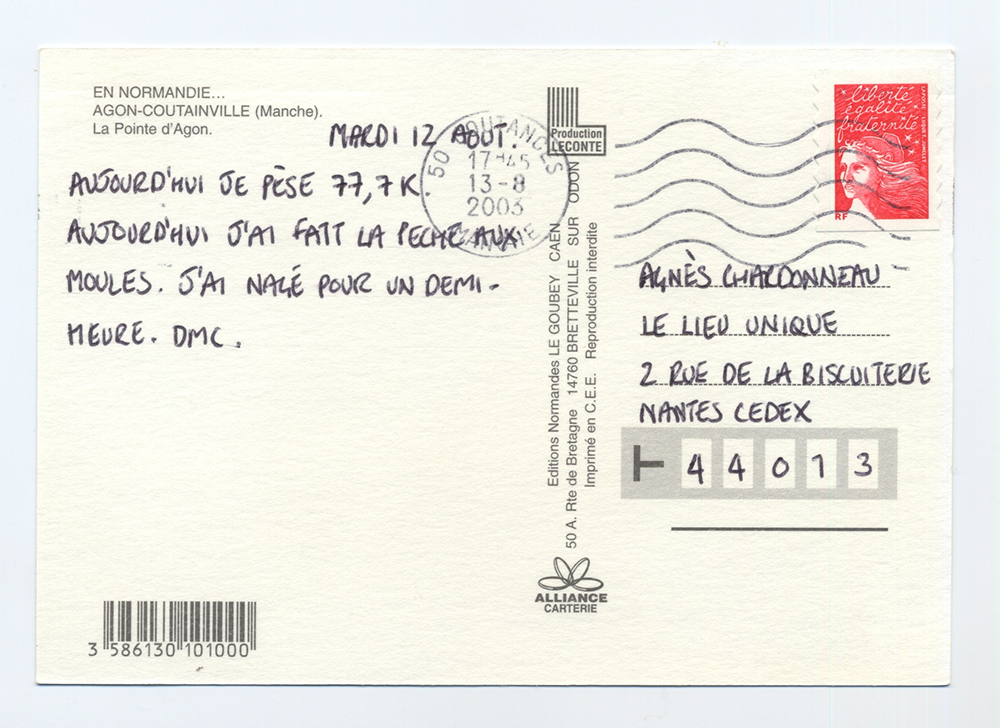 EN NORMANDIE...
AGON-COUTAINVILLE (Manche).
La Pointe d'Agon.
MARDI 12 AOUT.
AUJOURD'HUI JE PÈSE 77,7 K.
AUJOURD'HUI J'AI FAIT LA PECHE AUX
MOULES. J'AI NAGÉ POUR UN DEMI-
HEURE. DMC.
3 586130 101000
50 COUTANCES
17H45
13-8
2003
MANCHE
Production
LECONTE
Editions Normandes LE GOUBEY CAEN
50 A. Rte de Bretagne 14760 BRETTEVILLE SUR ODON
Imprimé en C.E.E. Reproduction interdite
ALLIANCE
CARTERIE
liberté
égalité
fraternité
RF
AGNÈS CHARDONNEAU
LE LIEU UNIQUE
2 RUE DE LA BISCUITERIE
NANTES CEDEX
T 44013